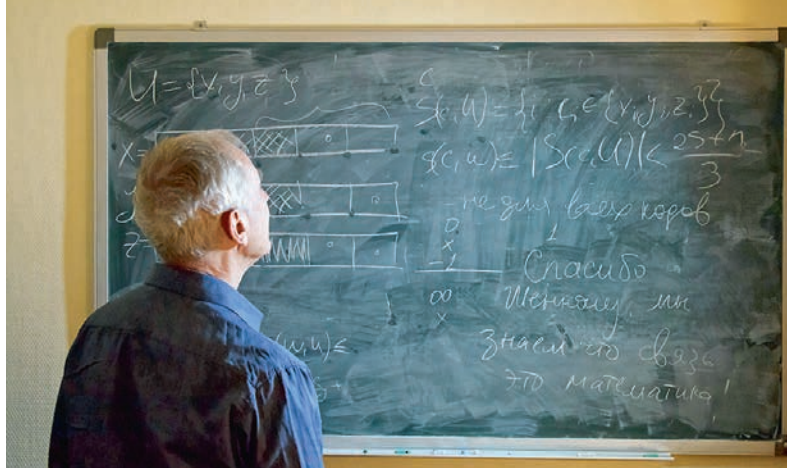 U = {x, y, z}
x =
z =
(u, u) ≤
c
S(c, U) = {i, c_i ∈ {x_i, y_i, z_i}}
s(c, u) ≤ |S(c, U)| <
3
- не для всех кодов
0
x
-1
1
∞
x
Спасибо
Шеннону, мы
знаем что связь
это математика!